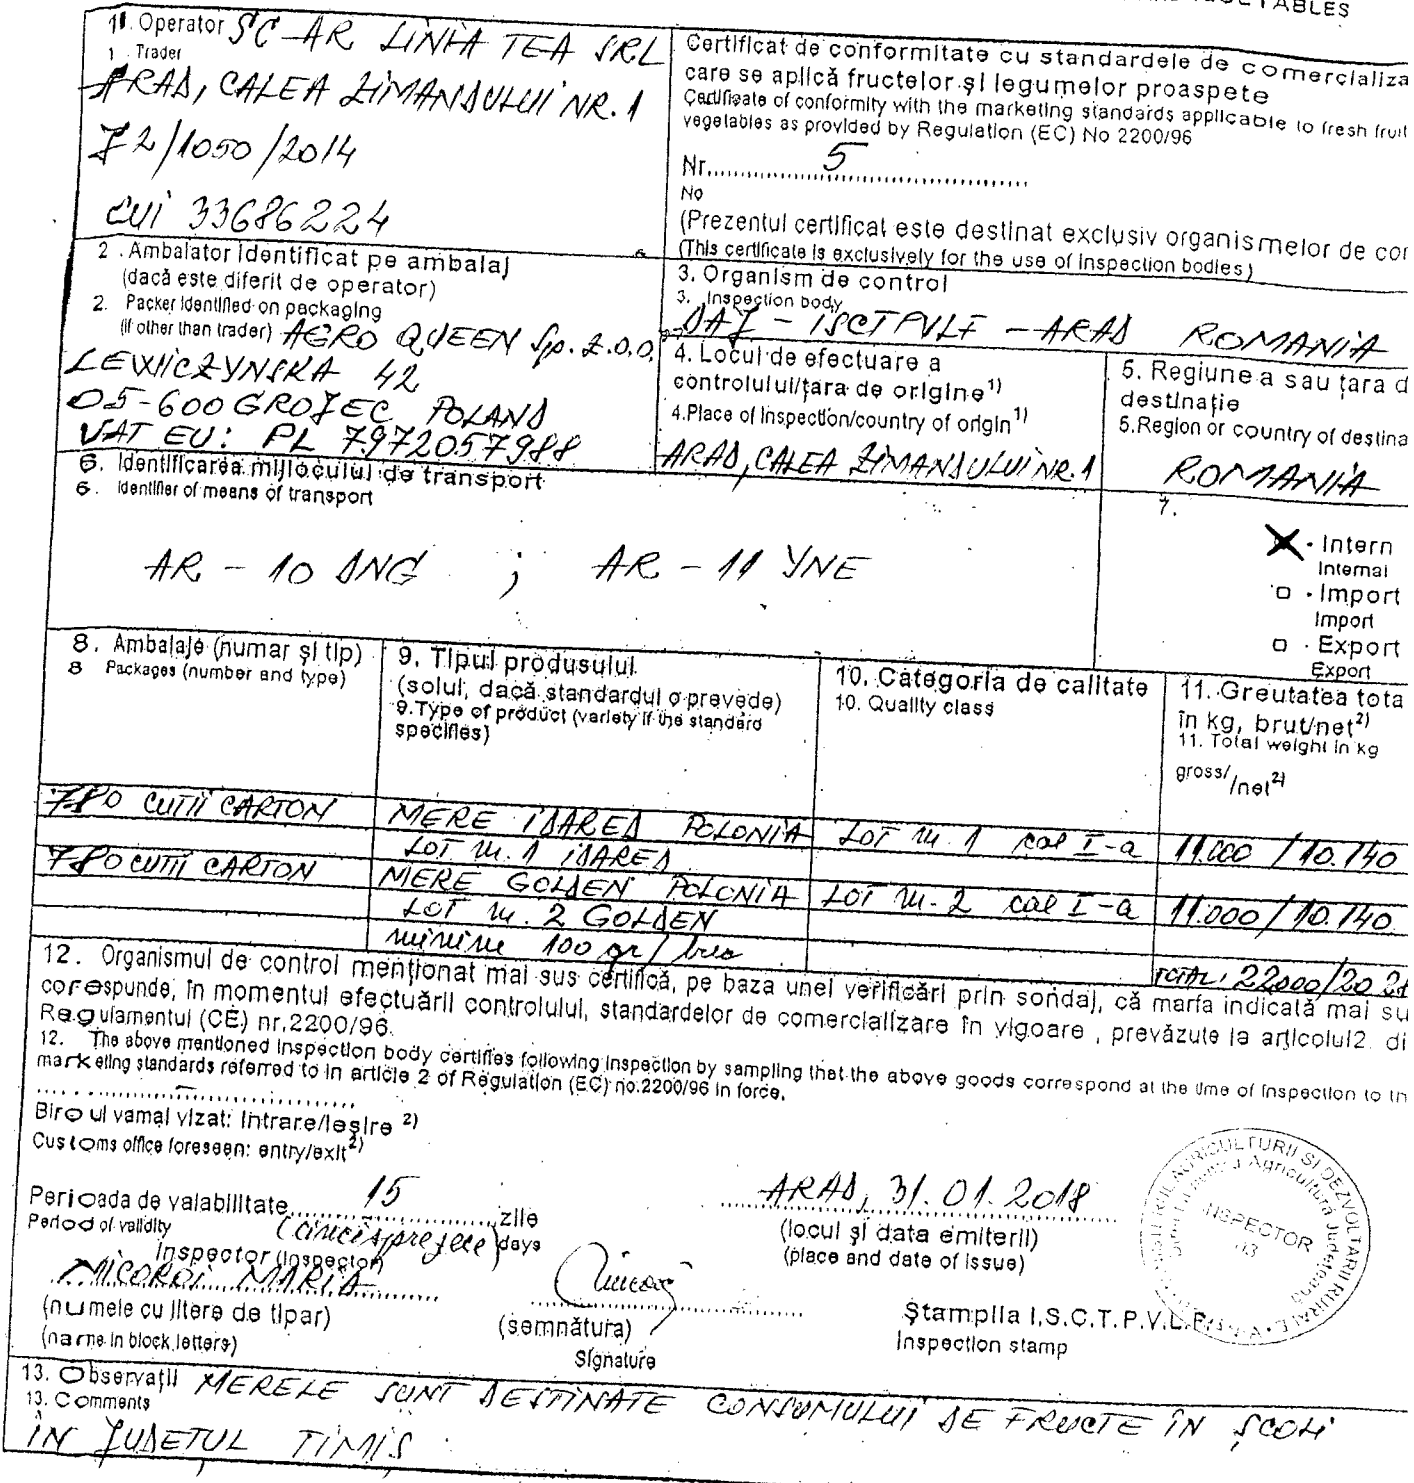 ABLES
1. Operator SC-AR LINIA TEA SRL
1. Trader
ARAD, CALEA ZIMANDULUI NR. 1
J2/1050/2014
CUI 33686224
Certificat de conformitate cu standardele de comercializa
care se aplică fructelor și legumelor proaspete
Certificate of conformity with the marketing standards applicable to fresh fruit
vegetables as provided by Regulation (EC) No 2200/96
Nr. 5
No
(Prezentul certificat este destinat exclusiv organismelor de co
(This certificate is exclusively for the use of inspection bodies)
2. Ambalator identificat pe ambalaj
(dacă este diferit de operator)
2. Packer identified on packaging
(if other than trader) AGRO QUEEN Sp. Z.O.O.
LEWICZYNSKA 42
05-600 GROJEC POLAND
VAT EU: PL 7972057988
3. Organism de control
3. Inspection body
DAJ - ISCTPVLF - ARAD ROMANIA
4. Locul de efectuare a
controlului/țara de origine1)
4.Place of inspection/country of origin1)
ARAD, CALEA ZIMANDULUI NR. 1
5. Regiunea sau țara d
destinație
5.Region or country of destina
ROMANIA
6. Identificarea mijlocului de transport
6. Identifier of means of transport
AR - 10 DNG ; AR - 11 YNE
7.
X - Intern
Internal
□ - Import
Import
□ - Export
Export
8. Ambalaje (numar și tip)
8 Packages (number and type)
9. Tipul produsului
(soiul, dacă standardul o prevede)
9.Type of product (variety if the standard
specifies)
10. Categoria de calitate
10. Quality class
11. Greutatea tota
în kg, brut/net2)
11. Total weight in kg
gross/ /net2)
780 CUTII CARTON MERE IDARED POLONIA LOT nr. 1 cal I-a 11.000 / 10.140
LOT nr. 1 IDARED
780 CUTII CARTON MERE GOLDEN POLONIA LOT nr. 2 cal I-a 11.000 / 10.140
LOT nr. 2 GOLDEN
minim 100 gr / buc
TOTAL: 22000/20.28
12. Organismul de control menționat mai sus certifică, pe baza unei verificări prin sondaj, că marfa indicată mai su
corespunde, în momentul efectuării controlului, standardelor de comercializare în vigoare , prevăzute la articolul2. di
Regulamentul (CE) nr.2200/96.
12. The above mentioned inspection body certifies following inspection by sampling that the above goods correspond at the time of inspection to th
marketing standards referred to in article 2 of Regulation (EC) no.2200/96 in force.
Biroul vamal vizat: intrare/ieșire 2)
Customs office foreseen: entry/exit2)
Perioada de valabilitate 15 zile
Period of validity (cincisprezece) days
ARAD, 31.01.2018
(locul și data emiterii)
(place and date of issue)
Inspector (Inspector)
NICOROI MARIA
(numele cu litere de tipar)
(name in block letters)
(semnătura)
Signature
Ștampila I.S.C.T.P.V.L.F.
Inspection stamp
INSPECTOR
13. Observații MERELE SUNT DESTINATE CONSUMULUI DE FRUCTE ÎN ȘCOLI
13. Comments
ÎN JUDEȚUL TIMIȘ